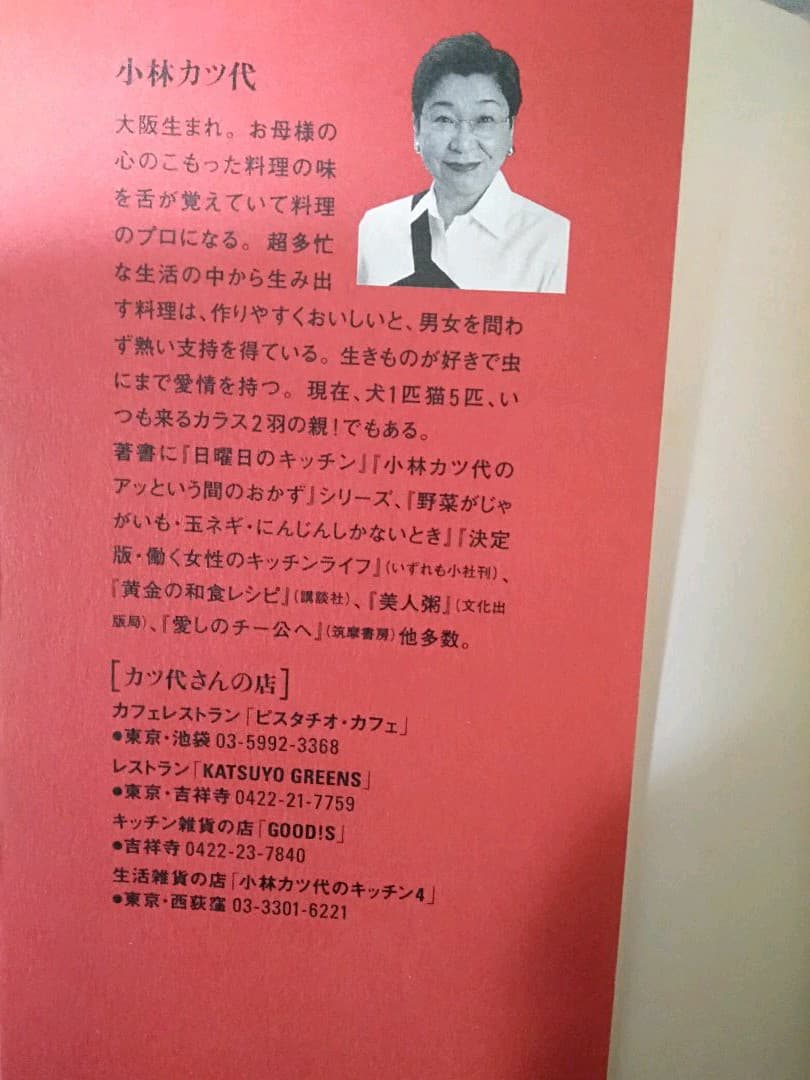 小林カツ代
大阪生まれ。お母様の
心のこもった料理の味
を舌が覚えていて料理
のプロになる。超多忙
な生活の中から生み出
す料理は、作りやすくおいしいと、男女を問わ
ず熱い支持を得ている。生きものが好きで虫
にまで愛情を持つ。現在、犬1匹猫5匹、い
つも来るカラス2羽の親!でもある。
著書に『日曜日のキッチン』『小林カツ代の
アッという間のおかず』シリーズ、『野菜がじゃ
がいも・玉ネギ・にんじんしかないとき』『決定
版・働く女性のキッチンライフ』(いずれも小社刊)、
『黄金の和食レシピ』(講談社)、『美人粥』(文化出
版局)、『愛しのチー公へ』(筑摩書房)他多数。
[カツ代さんの店]
カフェレストラン「ピスタチオ・カフェ」
●東京・池袋 03-5992-3368
レストラン「KATSUYO GREENS」
●東京・吉祥寺 0422-21-7759
キッチン雑貨の店「GOOD!S」
●吉祥寺 0422-23-7840
生活雑貨の店「小林カツ代のキッチン4」
●東京・西荻窪 03-3301-6221